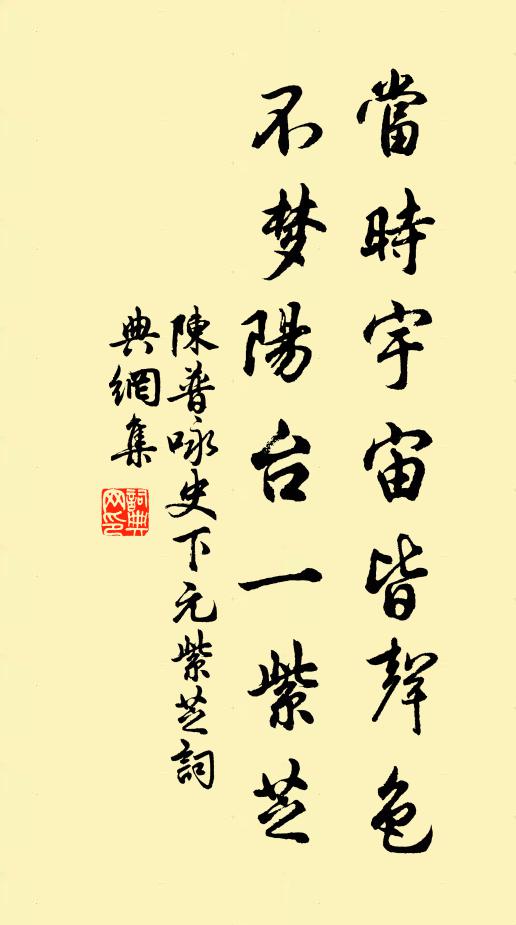 當時宇宙皆聲色
不梦陽台一紫芝
陳普咏史下元紫芝詞
典網集
詞典
网印